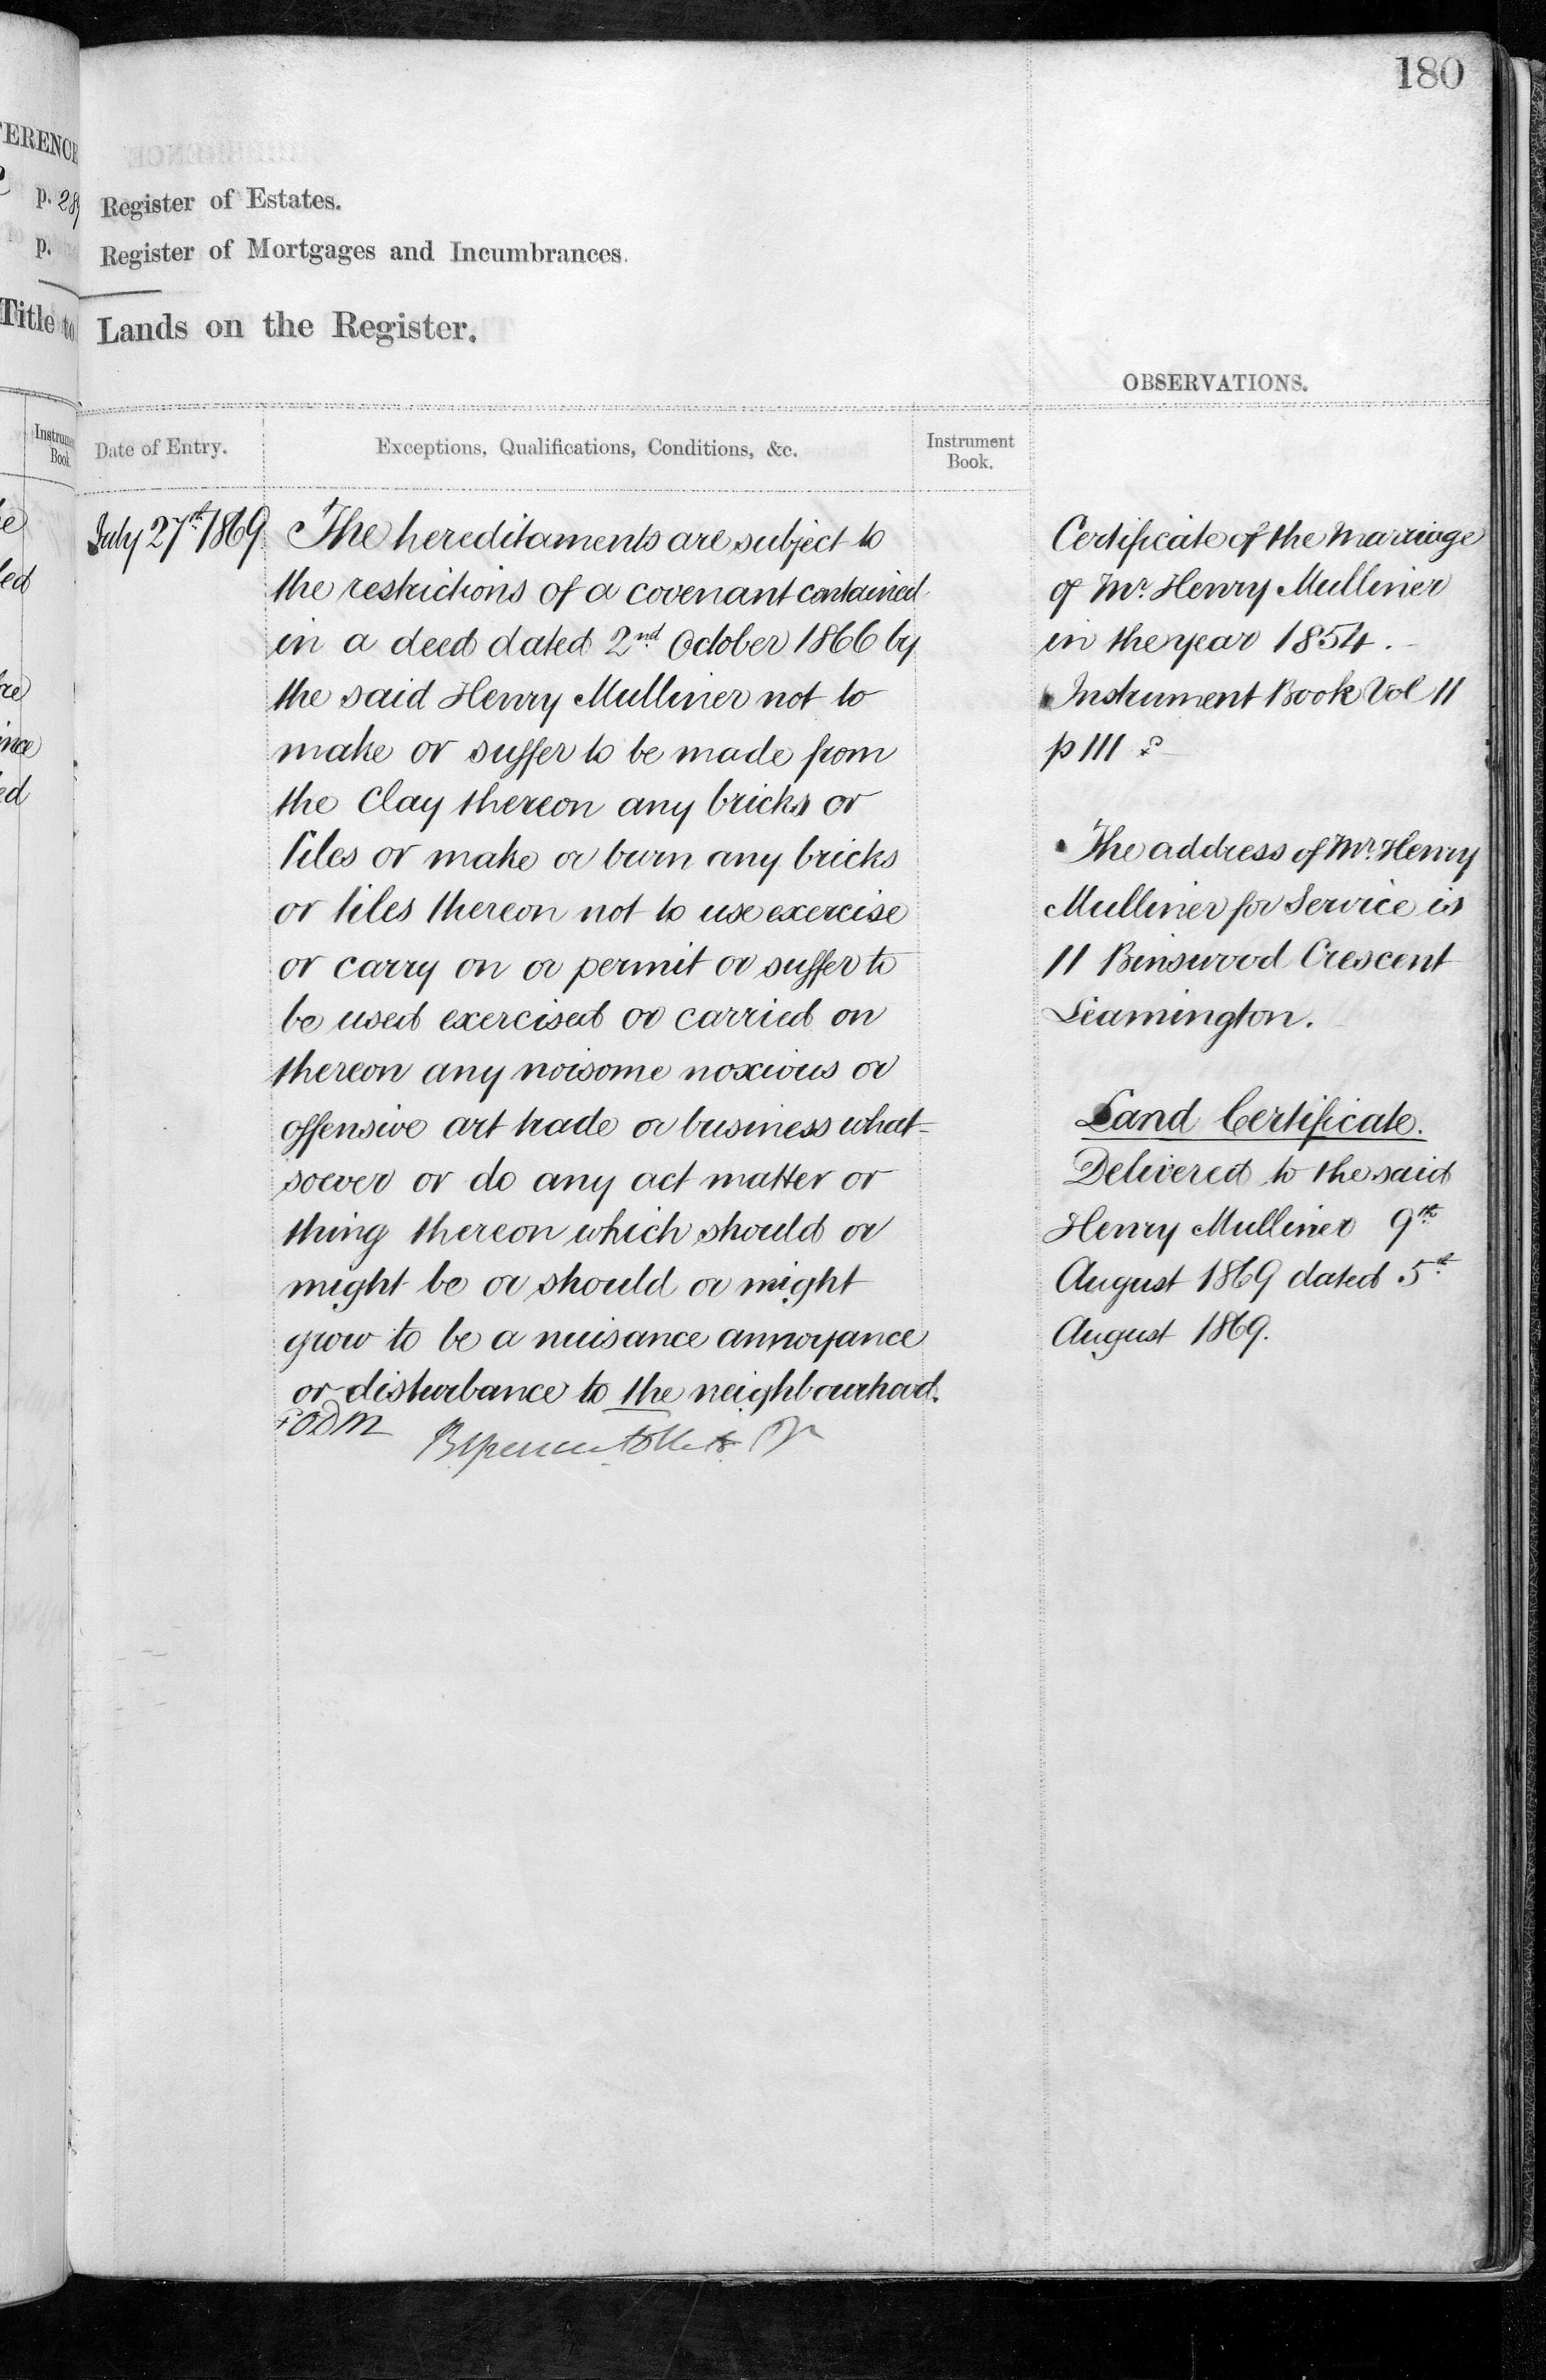 180
Register of Estates.
Register of Mortgages and Incumbrances.
Lands on the Register.
OBSERVATIONS.
Date of Entry.
Exceptions, Qualifications, Conditions, &c.
Instrument
Book.
July 27th 1869
The hereditaments are subject to
the restrictions of a covenant contained
in a deed dated 2nd October 1866 by
the said Henry Mulliner not to
make or suffer to be made from
the Clay thereon any bricks or
tiles or make or burn any bricks
or tiles thereon not to use exercise
or carry on or permit or suffer to
be used exercised or carried on
thereon any noisome noxious or
offensive art trade or business what=
soever or do any act matter or
thing thereon which should or
might be or should or might
grow to be a nuisance annoyance
or disturbance to the neighbourhood.
Certificate of the Marriage
of Mr. Henry Mulliner
in the year 1854.
Instrument Book Vol 11
p 111
The address of Mr. Henry
Mulliner for Service is
11 Binswood Crescent
Leamington.
Land Certificate.
Delivered to the said
Henry Mulliner 9th
August 1869 dated 5th
August 1869.
FERENCE
p. 28
p.
Title to
Instrumen
Book